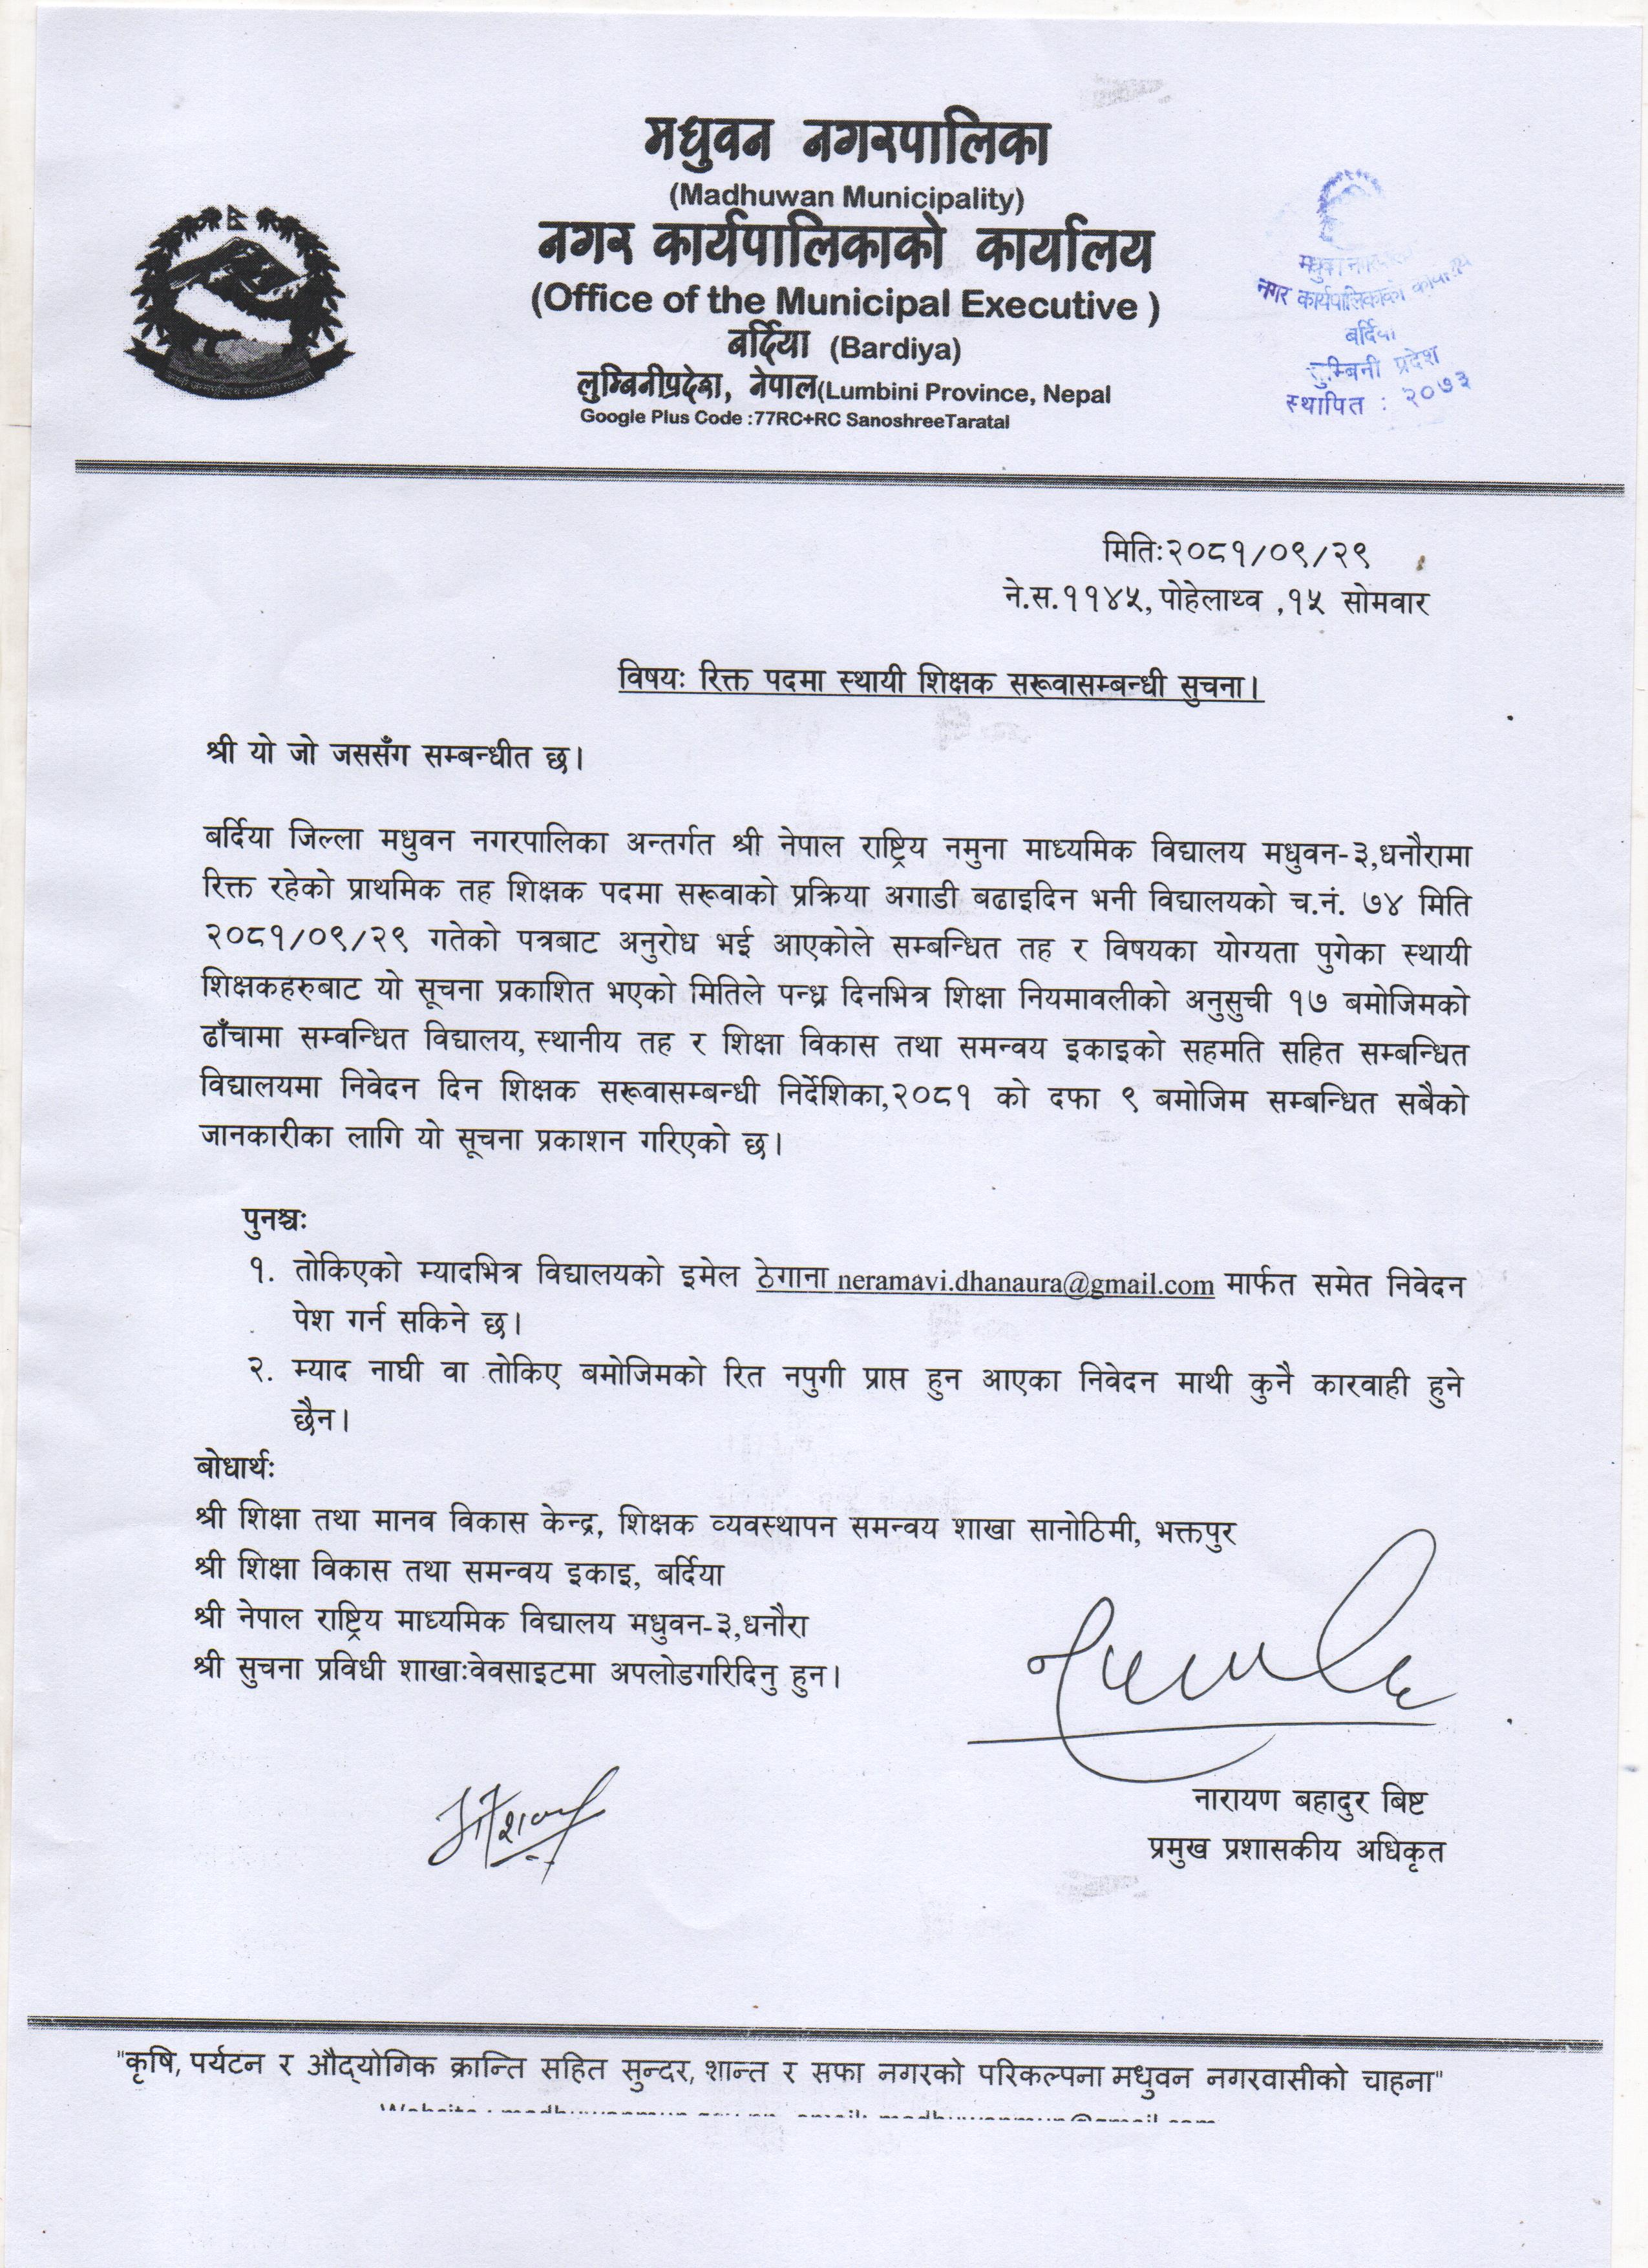 मधुवन नगरपालिका
(Madhuwan Municipality)
नगर कार्यपालिकाको कार्यालय
(Office of the Municipal Executive )
बर्दिया (Bardiya)
लुम्बिनीप्रदेश, नेपाल(Lumbini Province, Nepal
Google Plus Code :77RC+RC SanoshreeTaratal
नगर कार्यपालिकाको
बर्दिया
लुम्बिनी प्रदेश
स्थापित : २०७३
मितिः२०८१/०९/२९
ने.स.११४५, पोहेलाथ्व ,१५ सोमवार
विषयः रिक्त पदमा स्थायी शिक्षक सरूवासम्बन्धी सुचना।
श्री यो जो जससँग सम्बन्धीत छ।
बर्दिया जिल्ला मधुवन नगरपालिका अन्तर्गत श्री नेपाल राष्ट्रिय नमुना माध्यमिक विद्यालय मधुवन-३,धनौरामा
रिक्त रहेको प्राथमिक तह शिक्षक पदमा सरूवाको प्रक्रिया अगाडी बढाइदिन भनी विद्यालयको च.नं. ७४ मिति
२०८१/०९/२९ गतेको पत्रबाट अनुरोध भई आएकोले सम्बन्धित तह र विषयका योग्यता पुगेका स्थायी
शिक्षकहरुबाट यो सूचना प्रकाशित भएको मितिले पन्ध्र दिनभित्र शिक्षा नियमावलीको अनुसुची १७ बमोजिमको
ढाँचामा सम्वन्धित विद्यालय, स्थानीय तह र शिक्षा विकास तथा समन्वय इकाइको सहमति सहित सम्बन्धित
विद्यालयमा निवेदन दिन शिक्षक सरूवासम्बन्धी निर्देशिका,२०८१ को दफा ९ बमोजिम सम्बन्धित सबैको
जानकारीका लागि यो सूचना प्रकाशन गरिएको छ।
पुनश्चः
१. तोकिएको म्यादभित्र विद्यालयको इमेल ठेगाना neramavi.dhanaura@gmail.com मार्फत समेत निवेदन
पेश गर्न सकिने छ।
२. म्याद नाघी वा तोकिए बमोजिमको रित नपुगी प्राप्त हुन आएका निवेदन माथी कुनै कारवाही हुने
छैन।
बोधार्थः
श्री शिक्षा तथा मानव विकास केन्द्र, शिक्षक व्यवस्थापन समन्वय शाखा सानोठिमी, भक्तपुर
श्री शिक्षा विकास तथा समन्वय इकाइ, बर्दिया
श्री नेपाल राष्ट्रिय माध्यमिक विद्यालय मधुवन-३,धनौरा
श्री सुचना प्रविधी शाखाःवेवसाइटमा अपलोडगरिदिनु हुन।
नारायण बहादुर बिष्ट
प्रमुख प्रशासकीय अधिकृत
"कृषि, पर्यटन र औद्योगिक क्रान्ति सहित सुन्दर, शान्त र सफा नगरको परिकल्पना मधुवन नगरवासीको चाहना"